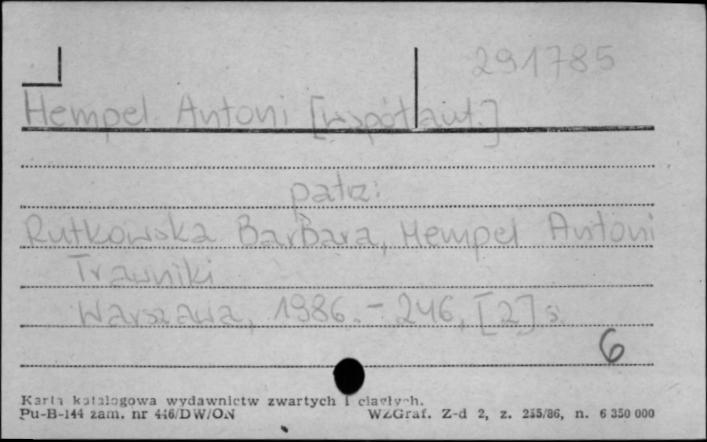 291785
Hempel Antoni [współaut.]
patrz:
Rutkowska Barbara, Hempel Antoni
Trawniki
Warszawa, 1986. - 246, [2] s.
6
Karta katalogowa wydawnictw zwartych i ciągłych.
Pu-B-144 zam. nr 446/DW/ON WZGraf. Z-d 2, z. 255/86, n. 6 350 000